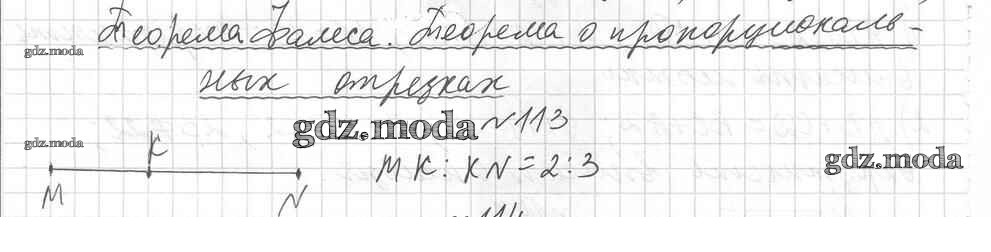 Теорема Фалеса. Теорема о пропорциональ-
gdz.moda
ных отрезках
gdz.moda №113
gdz.moda K
MK : KN = 2 : 3 gdz.moda
M N